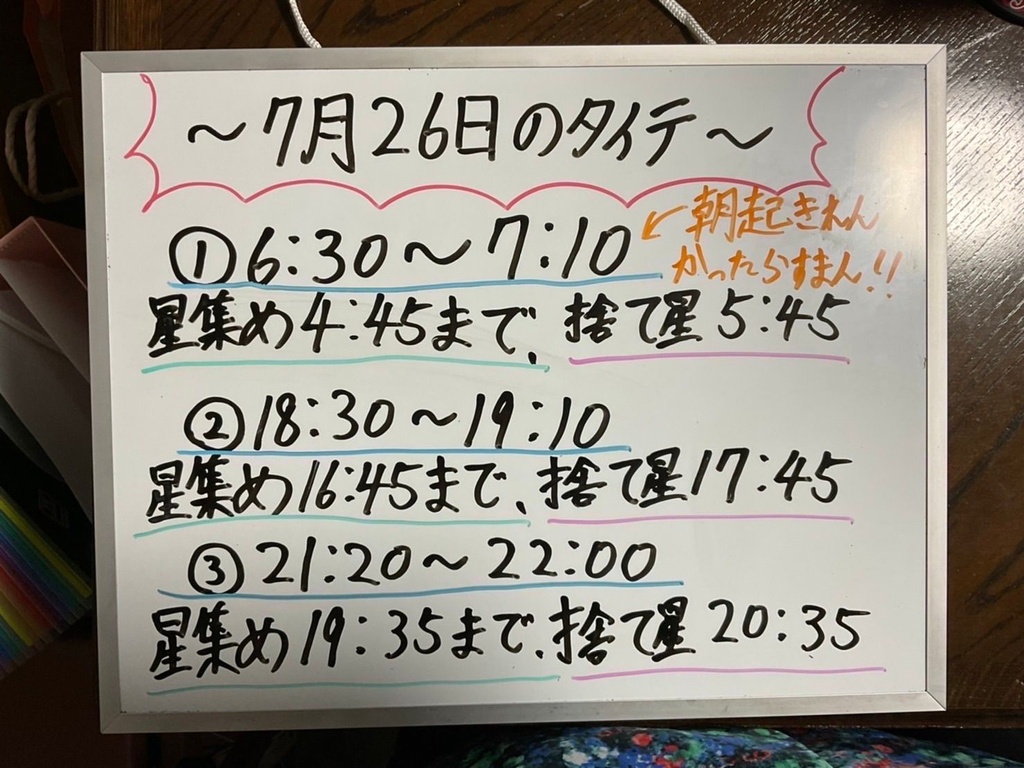 ～7月26日のタイテ～
①6:30～7:10
↙朝起きれん
かったらすまん!!
星集め4:45まで、捨て星5:45
②18:30～19:10
星集め16:45まで、捨て星17:45
③21:20～22:00
星集め19:35まで、捨て星20:35